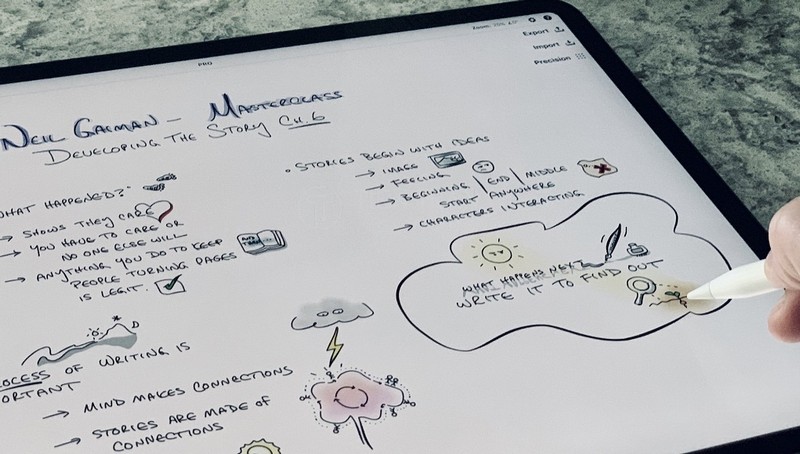 Export
Import
Precision
PRO
NEIL GAIMAN - MASTERCLASS
DEVELOPING THE STORY CH. 6
WHAT HAPPENED?"
→ SHOWS THEY CARE
→ YOU HAVE TO CARE OR
NO ONE ELSE WILL
→ ANYTHING YOU DO TO KEEP
PEOPLE TURNING PAGES
IS LEGIT.
OCESS OF WRITING IS
ORTANT
→ MIND MAKES CONNECTIONS
→ STORIES ARE MADE OF
CONNECTIONS
• STORIES BEGIN WITH IDEAS
→ IMAGE
→ FEELING
→ BEGINNING | END | MIDDLE
START ANYWHERE
→ CHARACTERS INTERACTING
WHAT HAPPENS NEXT
WRITE IT TO FIND OUT